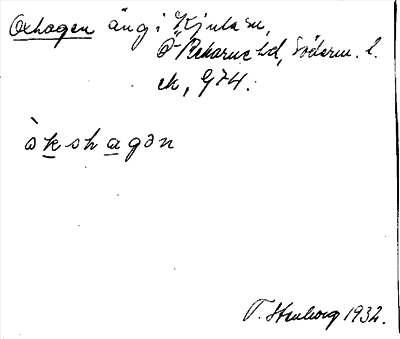 Oxhagen äng i Kjula sn,
Ö-Rekarne hd, Söderm. l.
ek, G74.
òkshagən
T. Stenborg 1932.